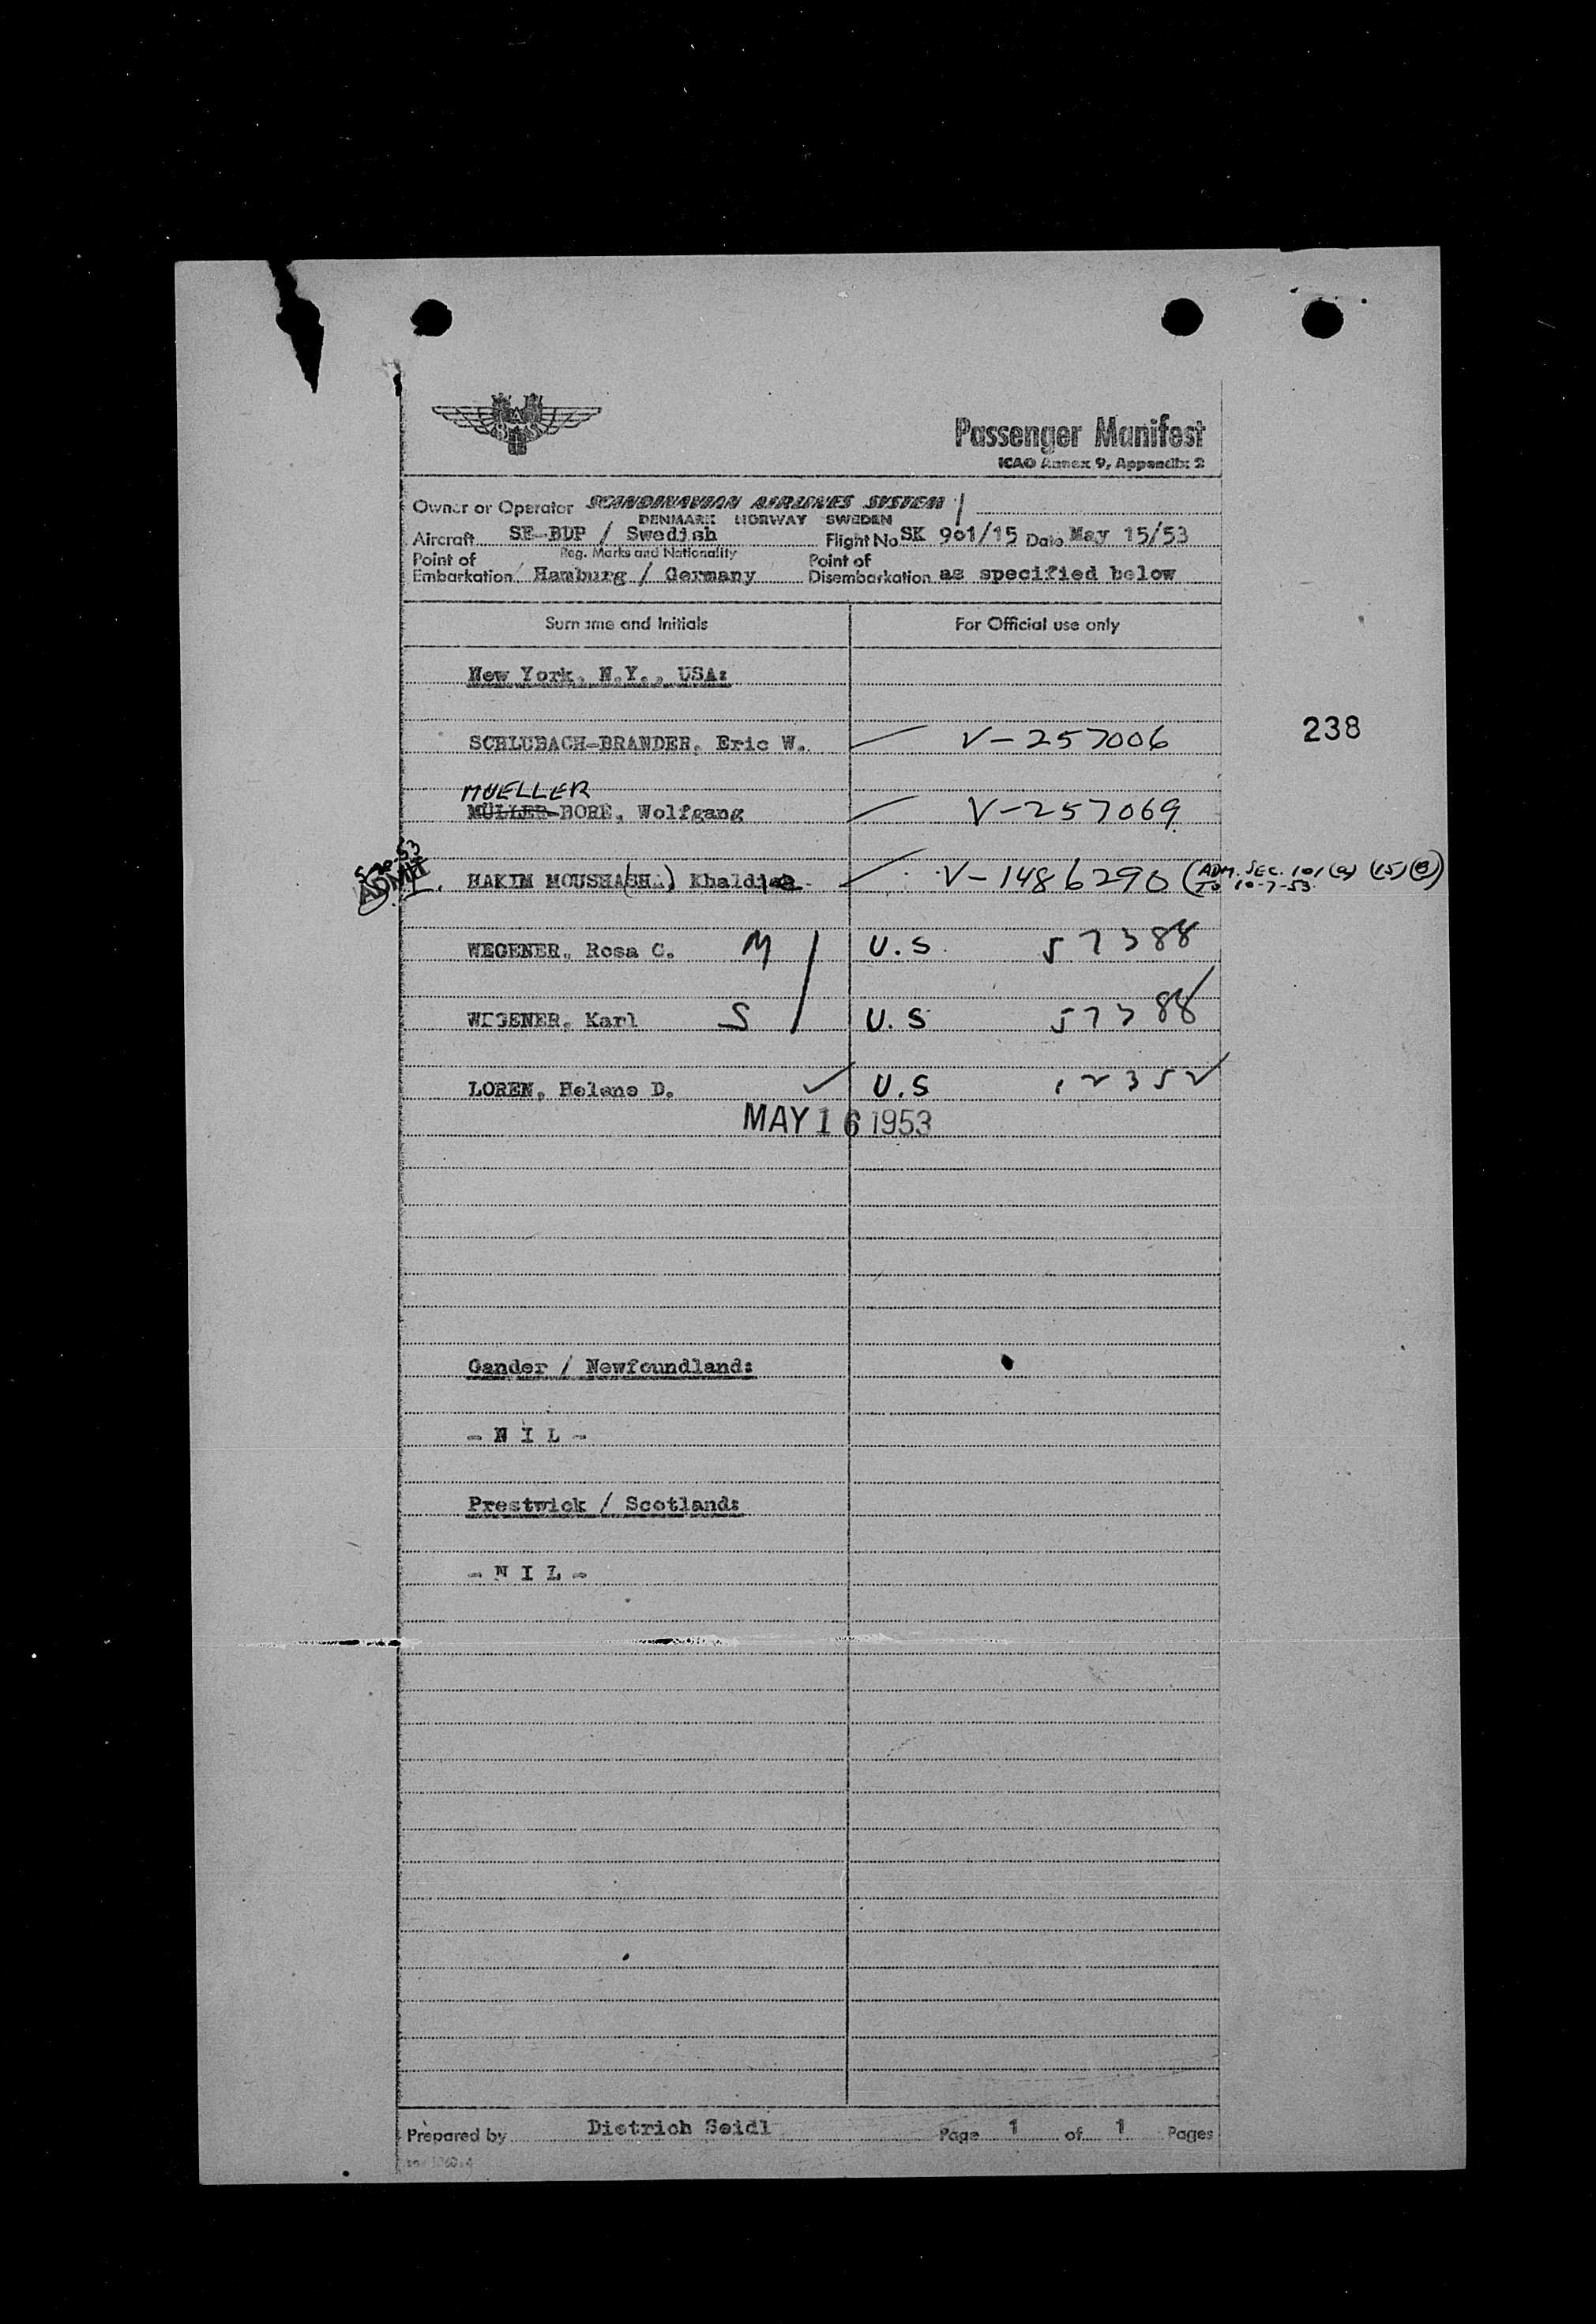 Passenger Manifest
ICAO Annex 9, Appendix 2
Owner or Operator SCANDINAVIAN AIRLINES SYSTEM
DENMARK NORWAY SWEDEN
Aircraft SE-BDP / Swedish Flight No SK 901/15 Date May 15/53
Reg. Marks and Nationality
Point of Embarkation Hamburg / Germany Point of Disembarkation as specified below
Surname and Initials For Official use only
New York, N.Y., USA:
238
SCHLUBACH-BRANDER, Eric W. V-257006
MUELLER
MÜLLER-BORE, Wolfgang V-257069
5-20-53
ADMIT
HAKIM MOUSHA(SH) Khaldi V-1486290 (ADM. SEC. 101(a) (15)(B)
TO 10-7-53
WEGENER, Rosa C. M U.S. 57388
WEGENER, Karl S U.S 57388
LOREN, Helene D. U.S 12352
MAY 16 1953
Gander / Newfoundland:
- N I L -
Prestwick / Scotland:
- N I L -
Prepared by Dietrich Seidl Page 1 of 1 Pages